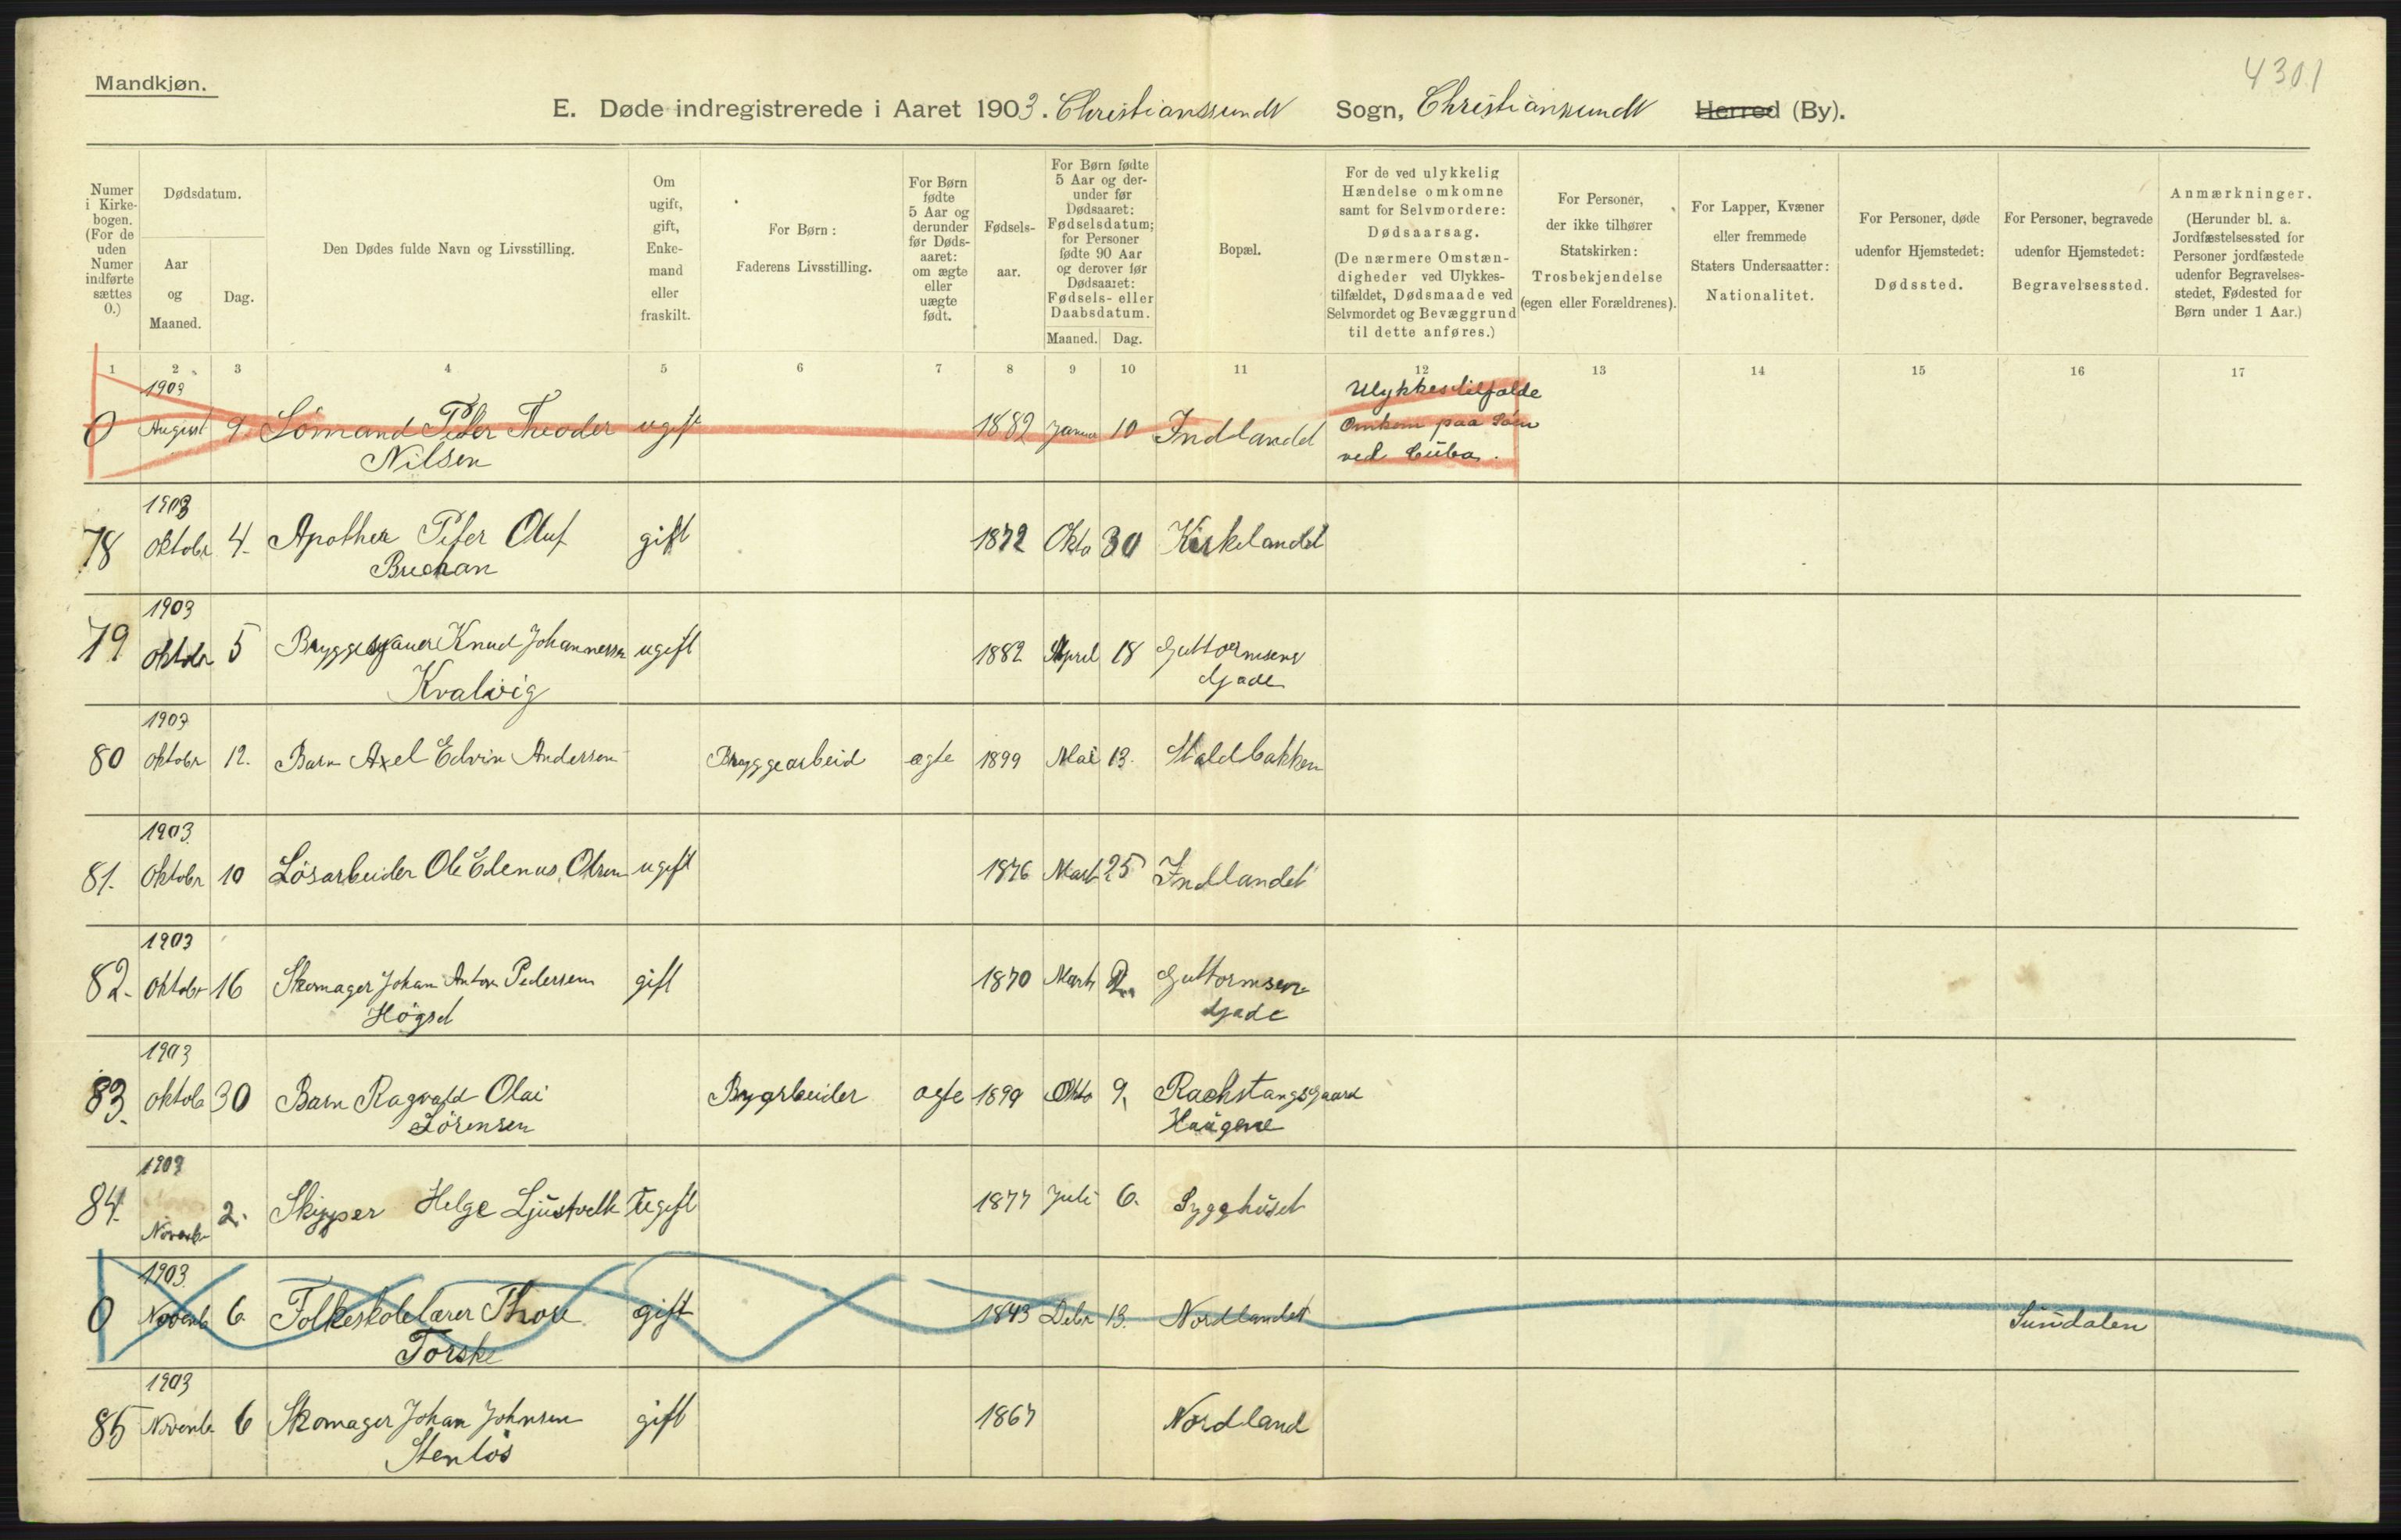 4301
Mandkjøn.
E. Døde indregistrerede i Aaret 1903. Christianssundt Sogn, Christianssundt Herred (By).
Numer i Kirke-bogen. (For de uden Numer indførte sættes 0.)
Dødsdatum.
Aar og Maaned.
Dag.
Den Dødes fulde Navn og Livsstilling.
Om ugift, gift, Enke-mand eller fraskilt.
For Børn: Faderens Livsstilling.
For Børn fødte 5 Aar og derunder før Døds-aaret: om ægte eller uægte født.
Fødsels-aar.
For Børn fødte 5 Aar og der-under før Dødsaaret: Fødselsdatum; for Personer fødte 90 Aar og derover før Dødsaaret: Fødsels- eller Daabsdatum.
Maaned. Dag.
Bopæl.
For de ved ulykkelig Hændelse omkomne samt for Selvmordere: Dødsaarsag. (De nærmere Omstæn-digheder ved Ulykkes-tilfældet, Dødsmaade ved Selvmordet og Bevæggrund til dette anføres.)
For Personer, der ikke tilhører Statskirken: Trosbekjendelse (egen eller Forældrenes).
For Lapper, Kvæner eller fremmede Staters Undersaatter: Nationalitet.
For Personer, døde udenfor Hjemstedet: Dødssted.
For Personer, begravede udenfor Hjemstedet: Begravelsessted.
Anmærkninger. (Herunder bl. a. Jordfæstelsessted for Personer jordfæstede udenfor Begravelses-stedet, Fødested for Børn under 1 Aar.)
1 2 3 4 5 6 7 8 9 10 11 12 13 14 15 16 17
1903 Ulykkestilfælde
0 August 9. Sömand Peter Theoder ugift 1882 Januar 10 Indlandet Omkom paa Söen
Nilsen ved Cuba.
1903
78 Oktobr 4. Apother Peter Oluf gift 1872 Okto 30 Kirkelandet
Buchan
1903
79 Oktobr 5 Knud Johannessen ugift 1882 April 18 Guttormsens
Kvalvig Gade
1903
80 Oktobr 12. Barn Axel Edvin Andersen Bryggearbeid ægte 1899 Mai 13. Staldbakken
1903
81. Oktobr 10 Lösarbeider Ole Edenus Olsen ugift 1876 Mart 25 Indlandet
1903
82. Oktobr 16 Skomager Johan Anton Pedersen gift 1870 Marts Guttormsen
Högset Gade
1903
83. Oktob 30 Barn Ragvald Olai ægte 1899 Okto 9. Gaard
Sörensen Haugene
1903
84. Novembr 2. Skipper Helge Ugift 1877 Juli 6. Sygehuset
1903
0 Novemb 6. Folkeskolelærer Thore gift 1843 Debr 13. Nordlandet Sundalen
Torske
1903
85 Novemb 6 Skomager Johan Johnsen gift 1867 Nordland
Stenlös